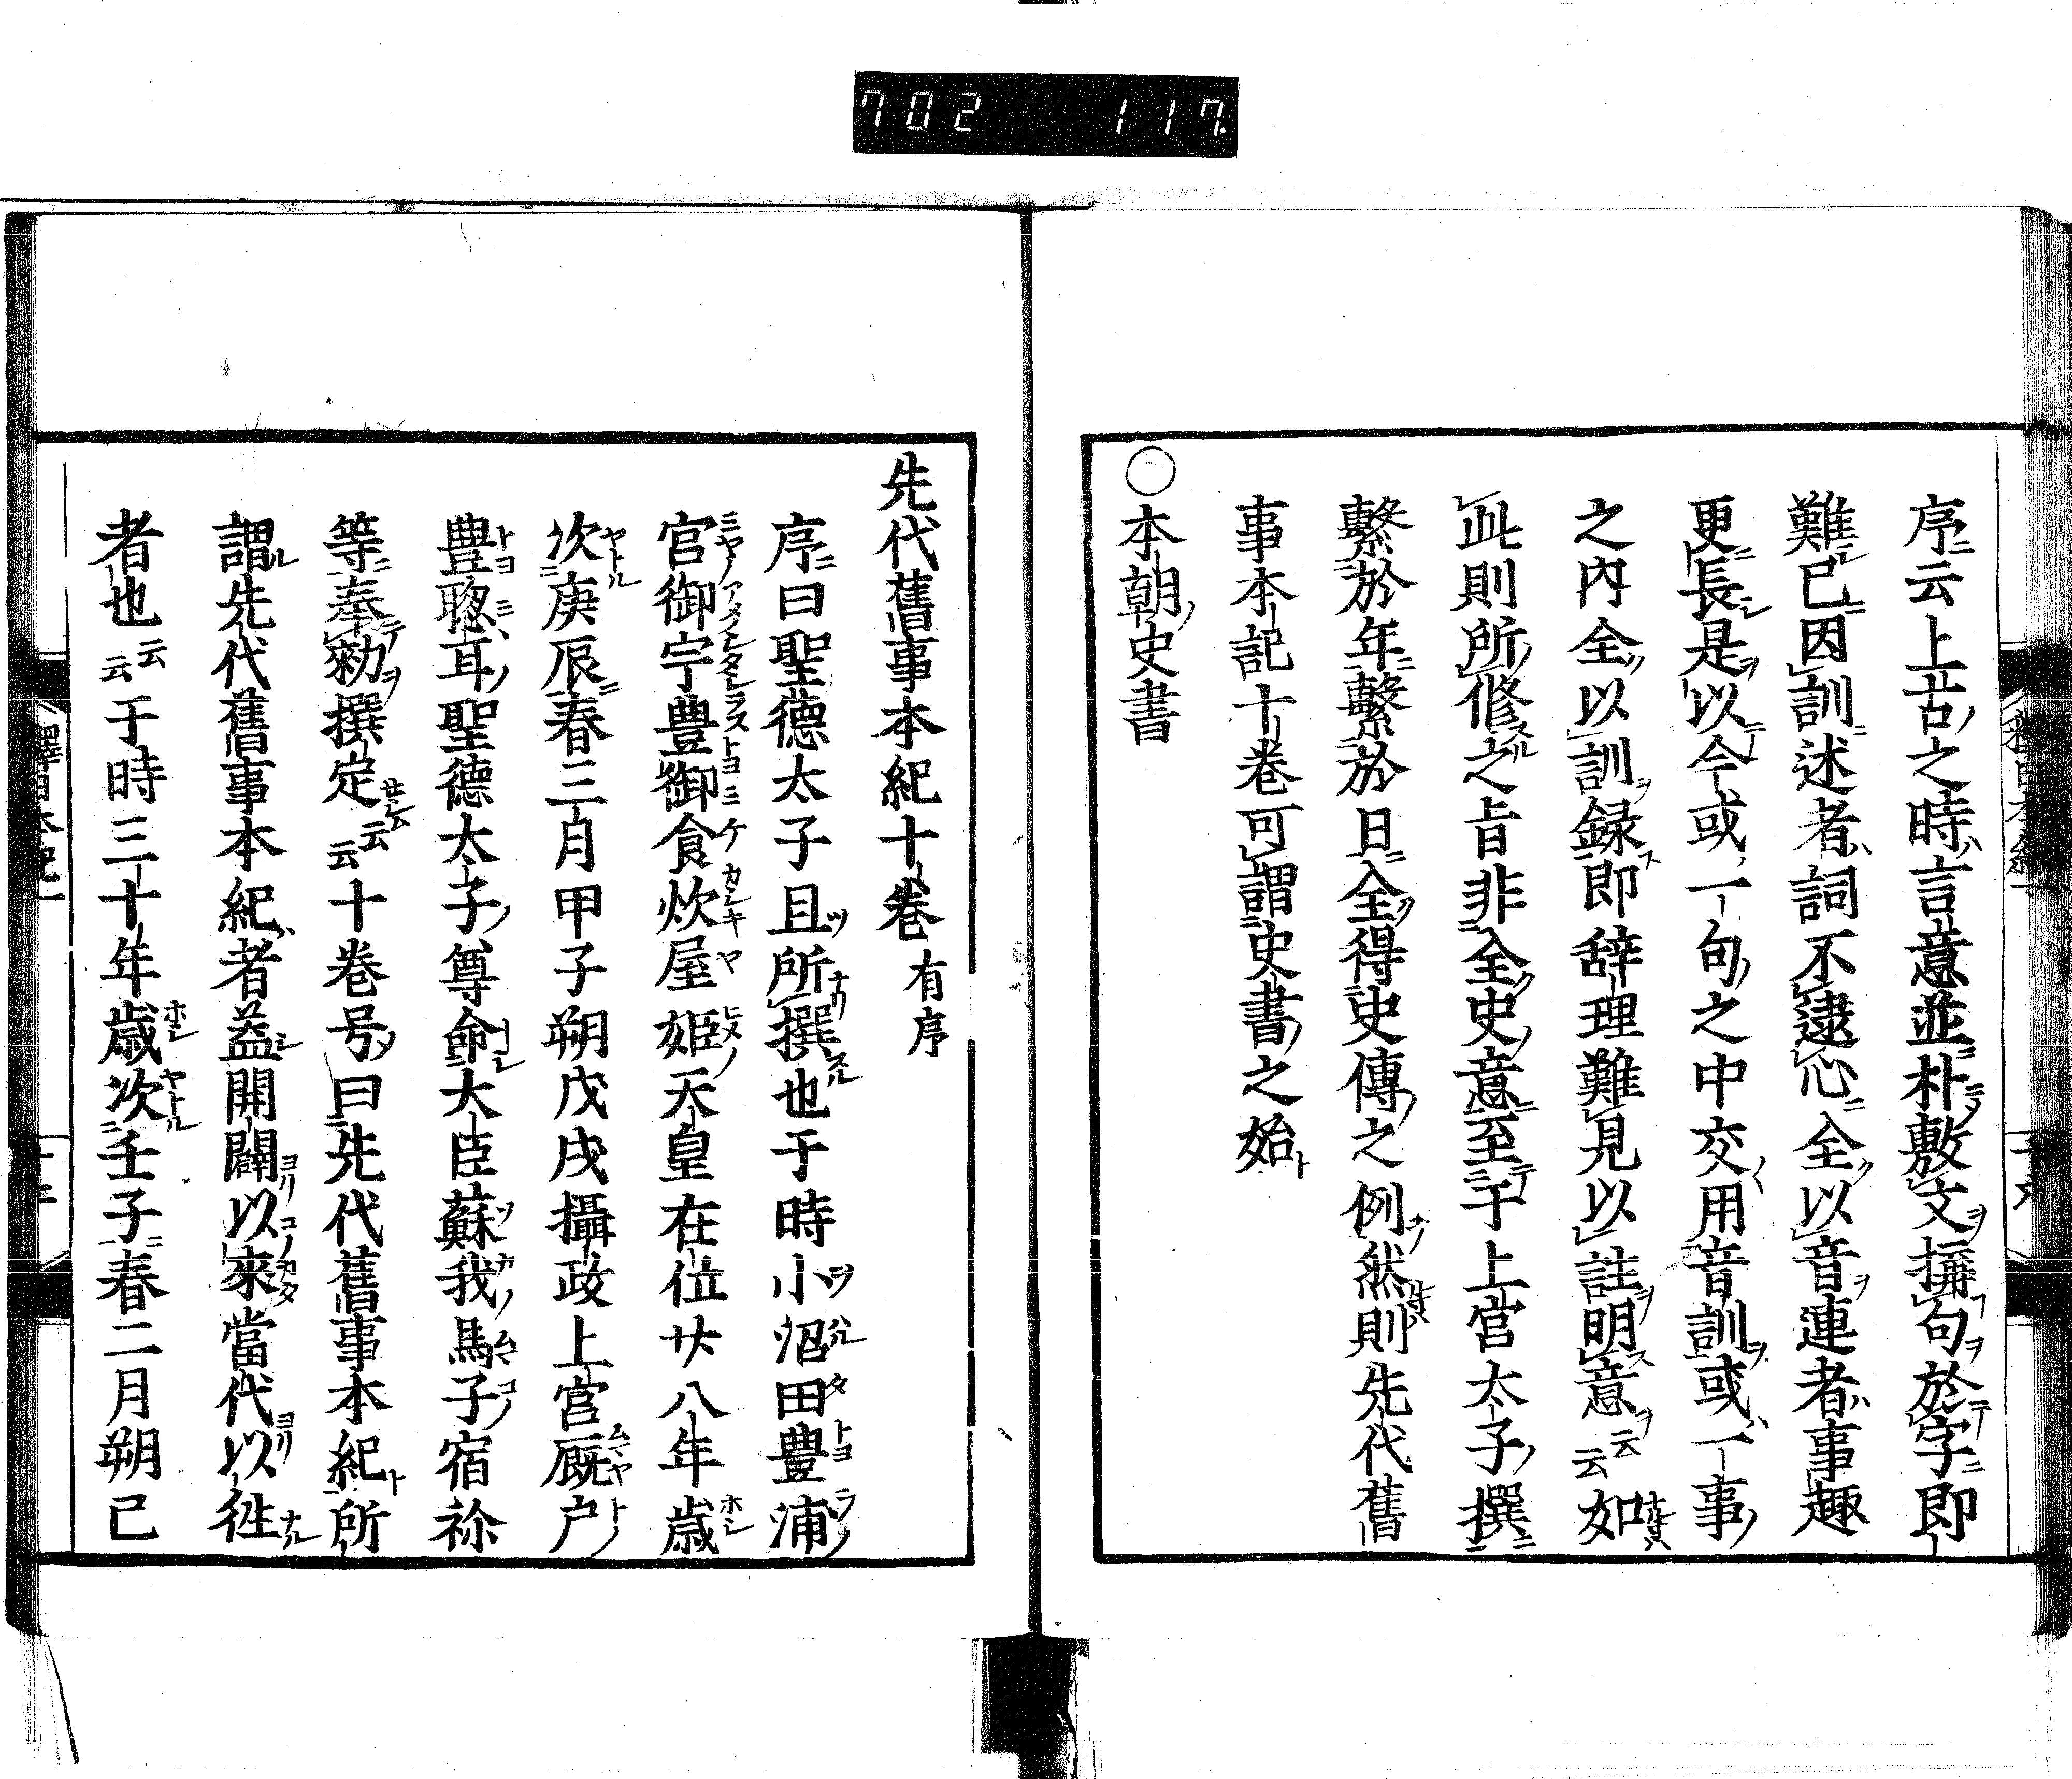 702 117
序云上古之時言意並朴敷文搆句於字即
難已因訓述者詞不逮心全以音連者事趣
更長是以今或一句之中交用音訓或一事
之内全以訓録即辞理難見以註明意云云如
此則所修之旨非全史意至于上宮太子撰
繫於年繫於日全得史傳之例然則先代舊
事本記十巻可謂史書之始
○本朝史書
先代舊事本紀十巻有序
序曰聖徳太子且所撰也于時小治田豊浦
宮御宇豊御食炊屋姫天皇在位廿八年歳
次庚辰春三月甲子朔戊戌攝政上宮厩戸
豊聰耳聖徳太子尊命大臣蘇我馬子宿祢
等奉勅撰定云云十巻号曰先代舊事本紀所
謂先代舊事本紀者蓋開闢以來當代以徃
者也云云于時三十年歳次壬子春二月朔己